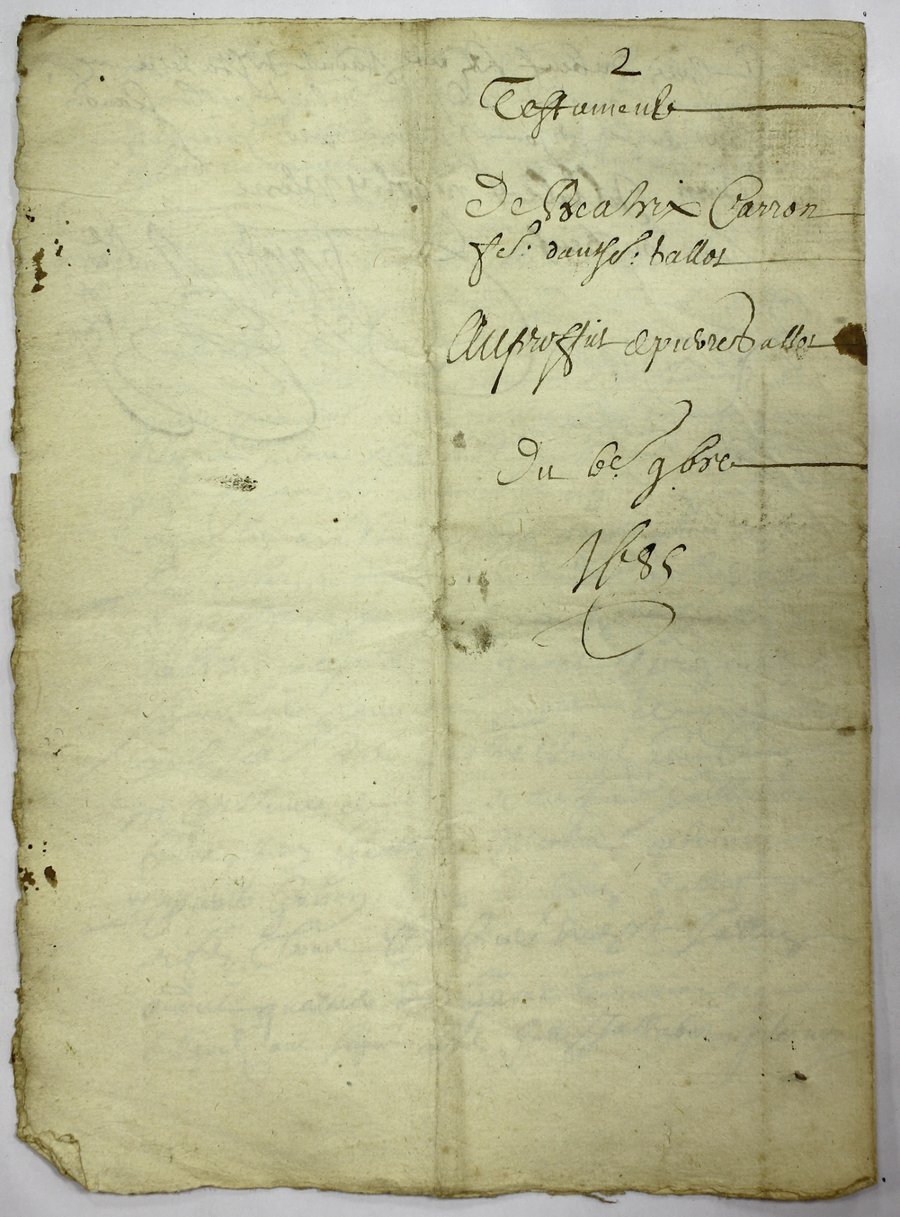 2
Testament
De Beatrix Carron
fe. d'anthe. vallot
Au proffit de pierre vallot
Du 6e. 9bre
1685